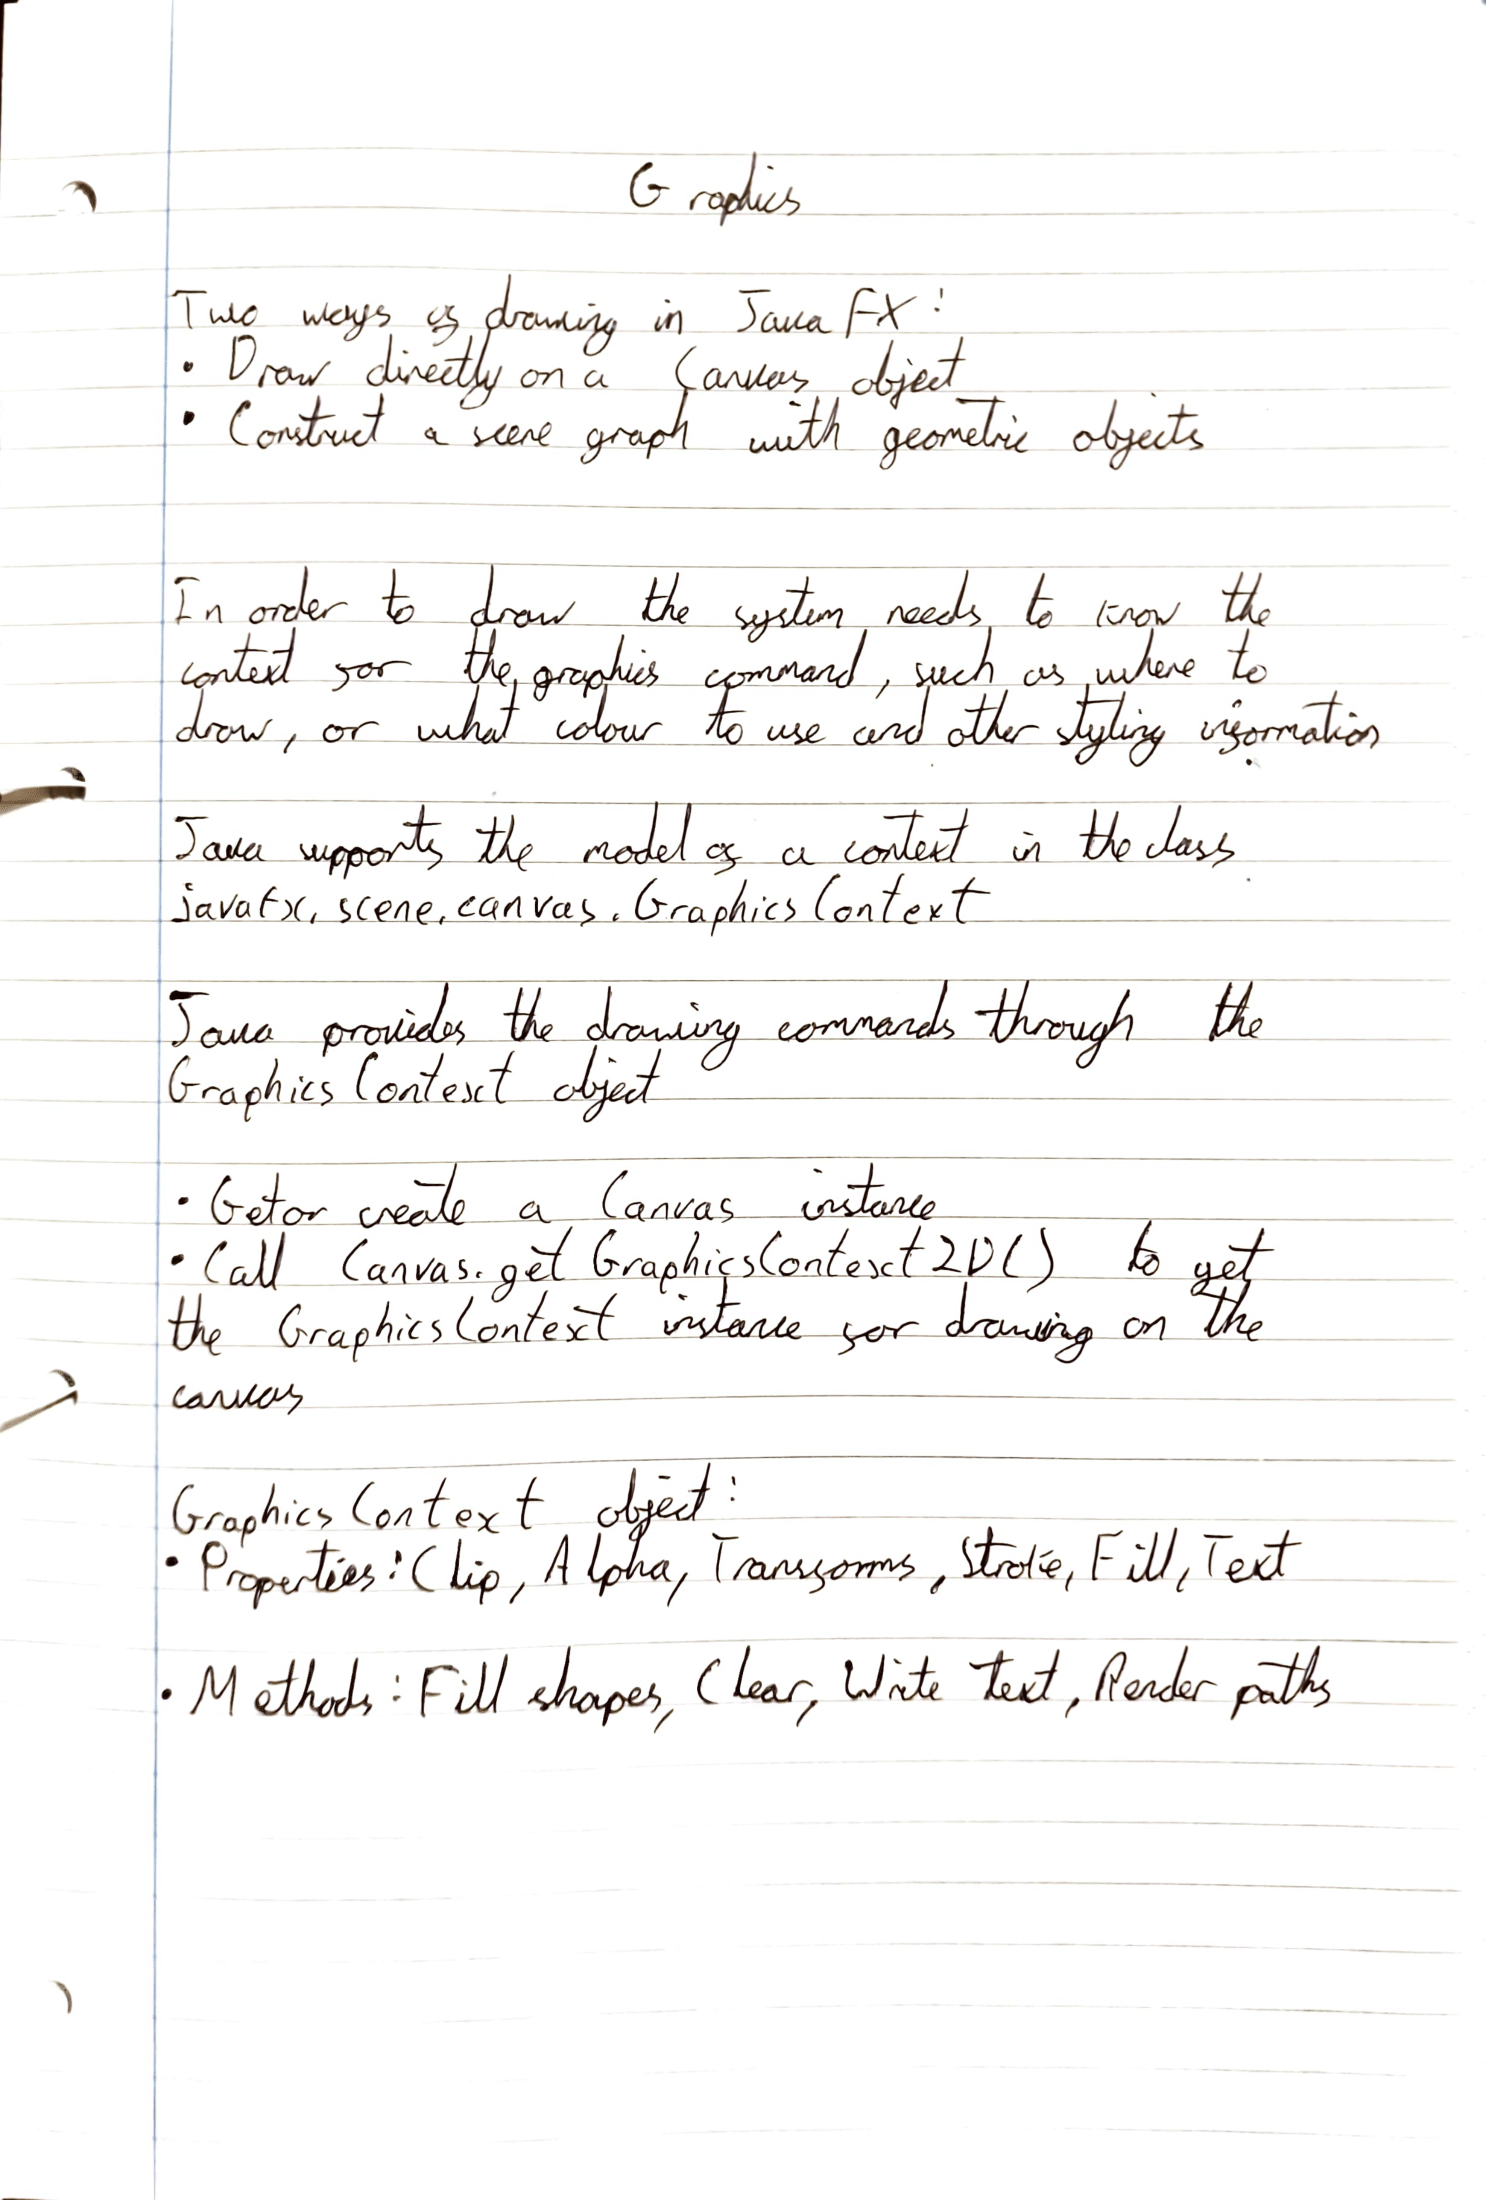 Graphics
Two ways of drawing in JavaFX:
• Draw directly on a Canvas object
• Construct a scene graph with geometric objects
In order to draw the system needs to know the
context for the graphics command, such as where to
draw, or what colour to use and other styling information
Java supports the model of a context in the class
javafx.scene.canvas.GraphicsContext
Java provides the drawing commands through the
GraphicsContext object
• Get or create a Canvas instance
• Call Canvas.getGraphicsContext2D() to get
the GraphicsContext instance for drawing on the
canvas
GraphicsContext object:
• Properties: Clip, Alpha, Transforms, Stroke, Fill, Text
• Methods: Fill shapes, Clear, Write text, Render paths